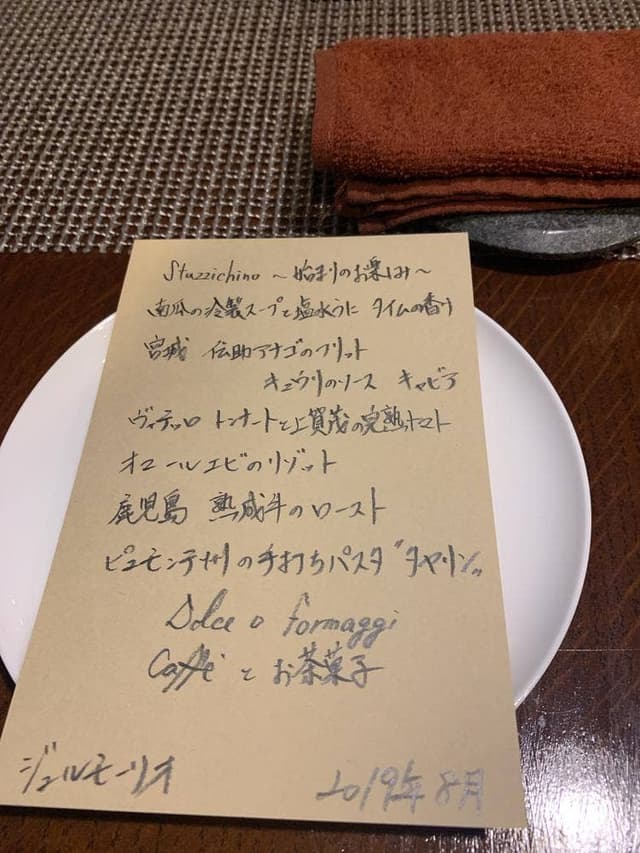 Stuzzichino ～始まりのお楽しみ～
南瓜の冷製スープと塩水うに タイムの香り
宮城 伝助アナゴのフリット
キュウリのソース キャビア
ヴィテッロ トンナートと上賀茂の完熟トマト
オマールエビのリゾット
鹿児島 熟成牛のロースト
ピエモンテ州の手打ちパスタ"タヤリン"
Dolce o formaggi
Caffé とお茶菓子
ジェルモーリオ
2019年8月